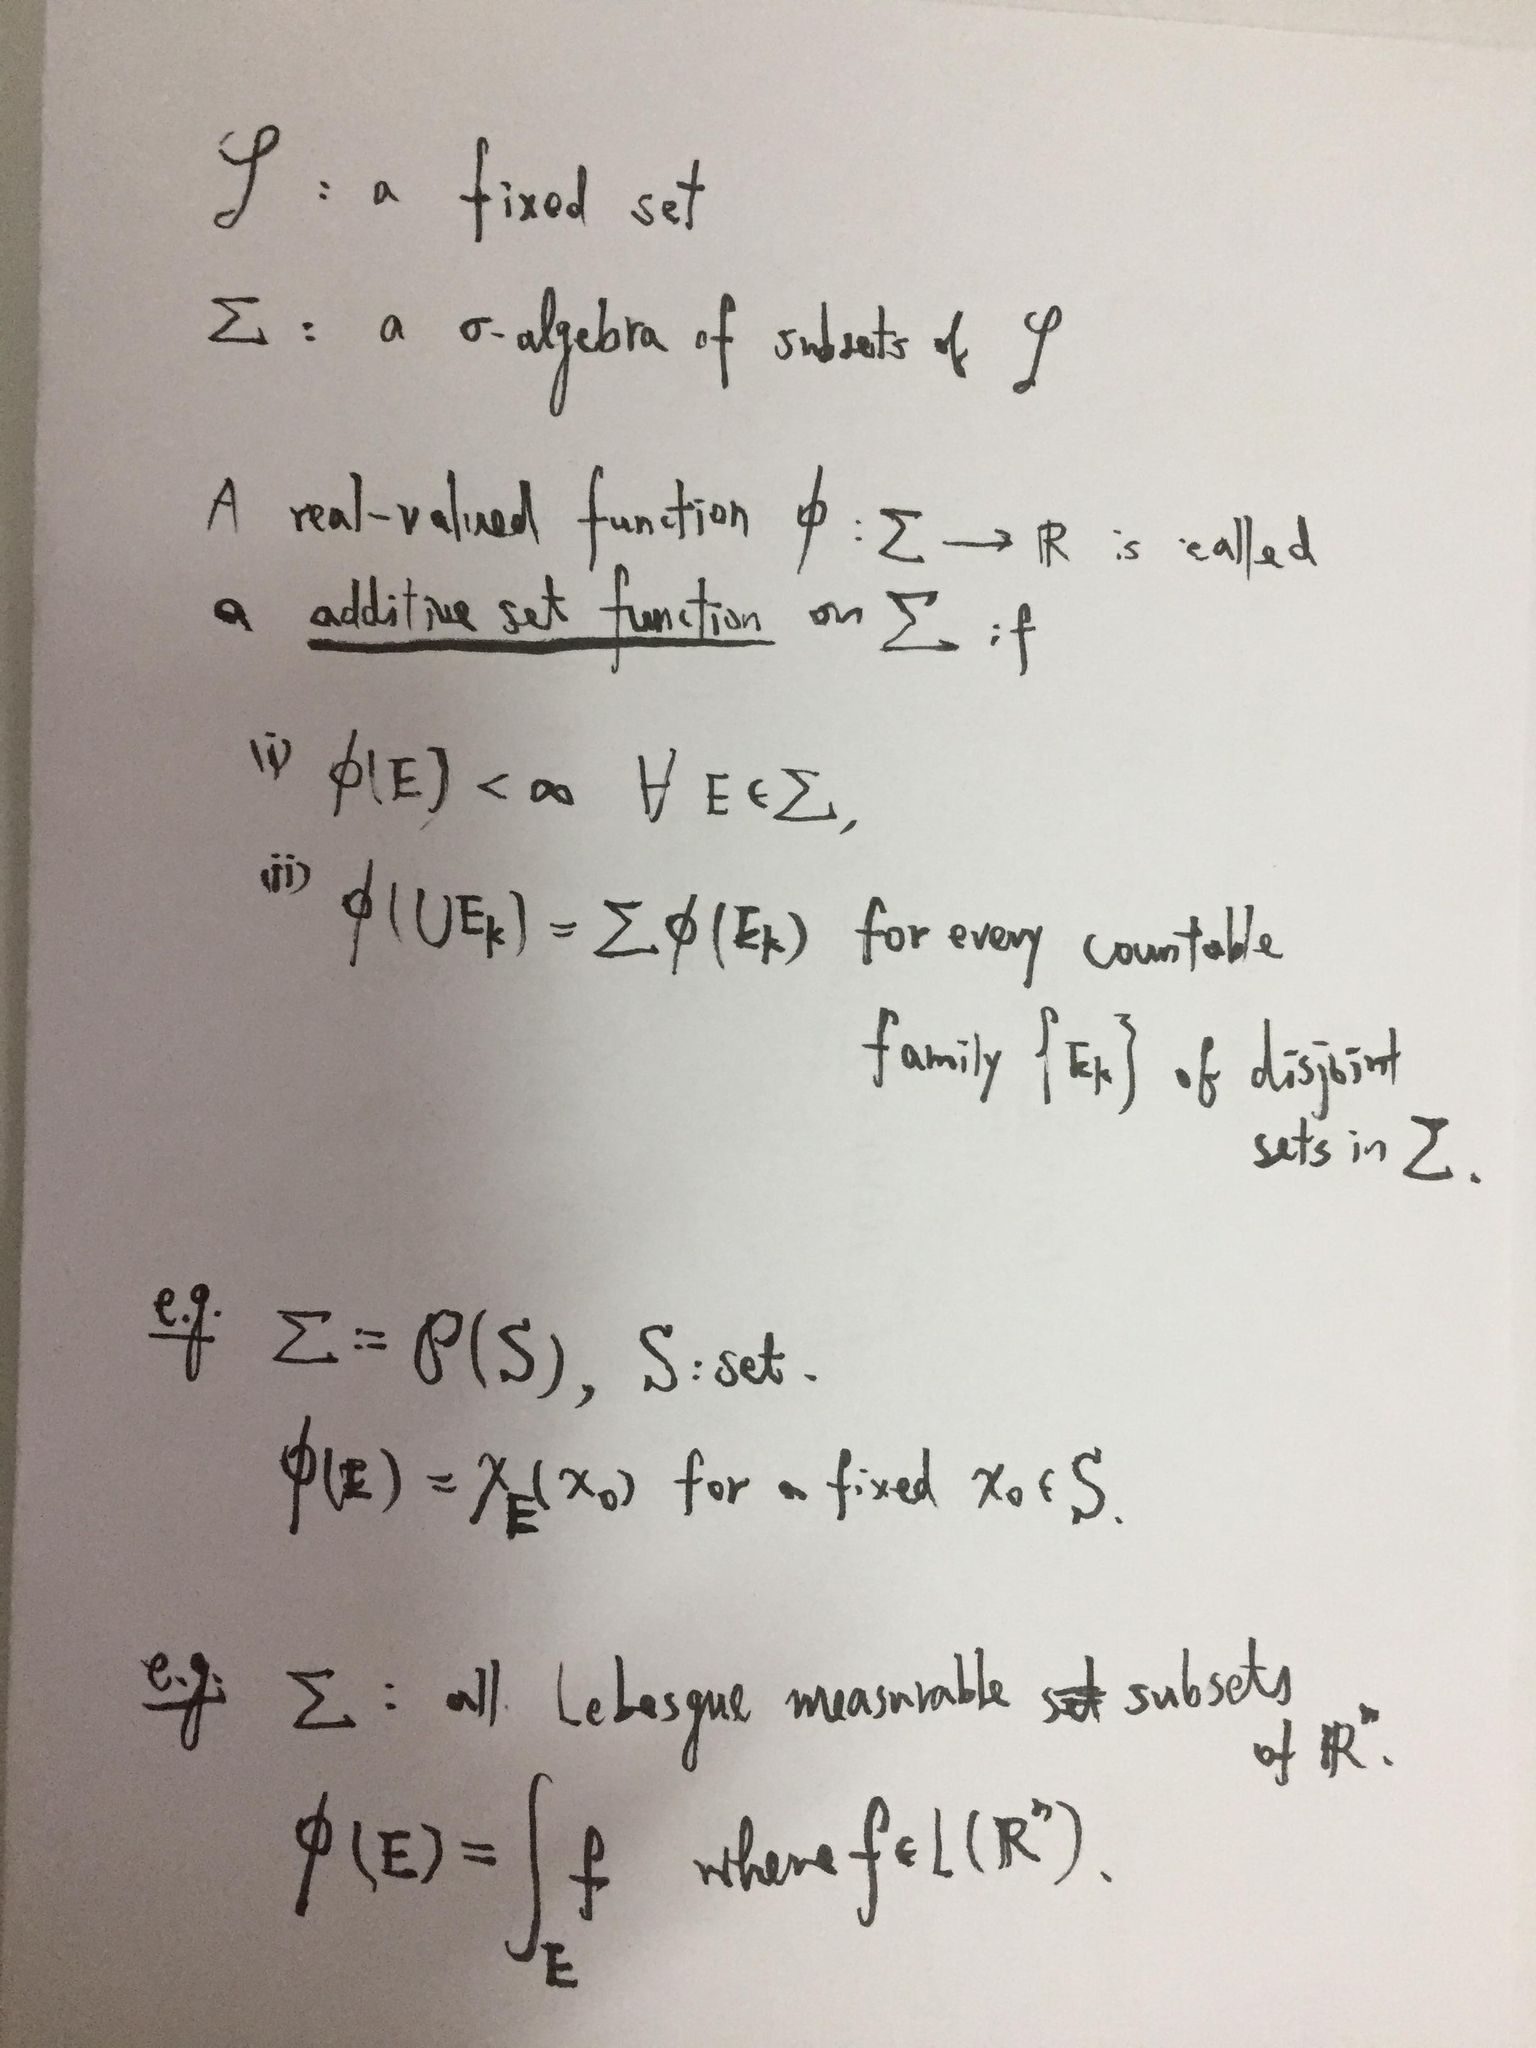 𝒮 : a fixed set
Σ : a σ-algebra of subsets of 𝒮
A real-valued function ϕ : Σ → ℝ is called
a additive set function on Σ if
(i) ϕ(E) < ∞ ∀ E ∈ Σ,
(ii) ϕ(∪E_k) = Σ ϕ(E_k) for every countable
family {E_k} of disjoint
sets in Σ.
e.g. Σ := 𝒫(S), S : set.
ϕ(E) = χ_E(x₀) for a fixed x₀ ∈ S.
e.g. Σ : all Lebesgue measurable set subsets
of ℝⁿ.
ϕ(E) = ∫_E f where f ∈ L(ℝⁿ).